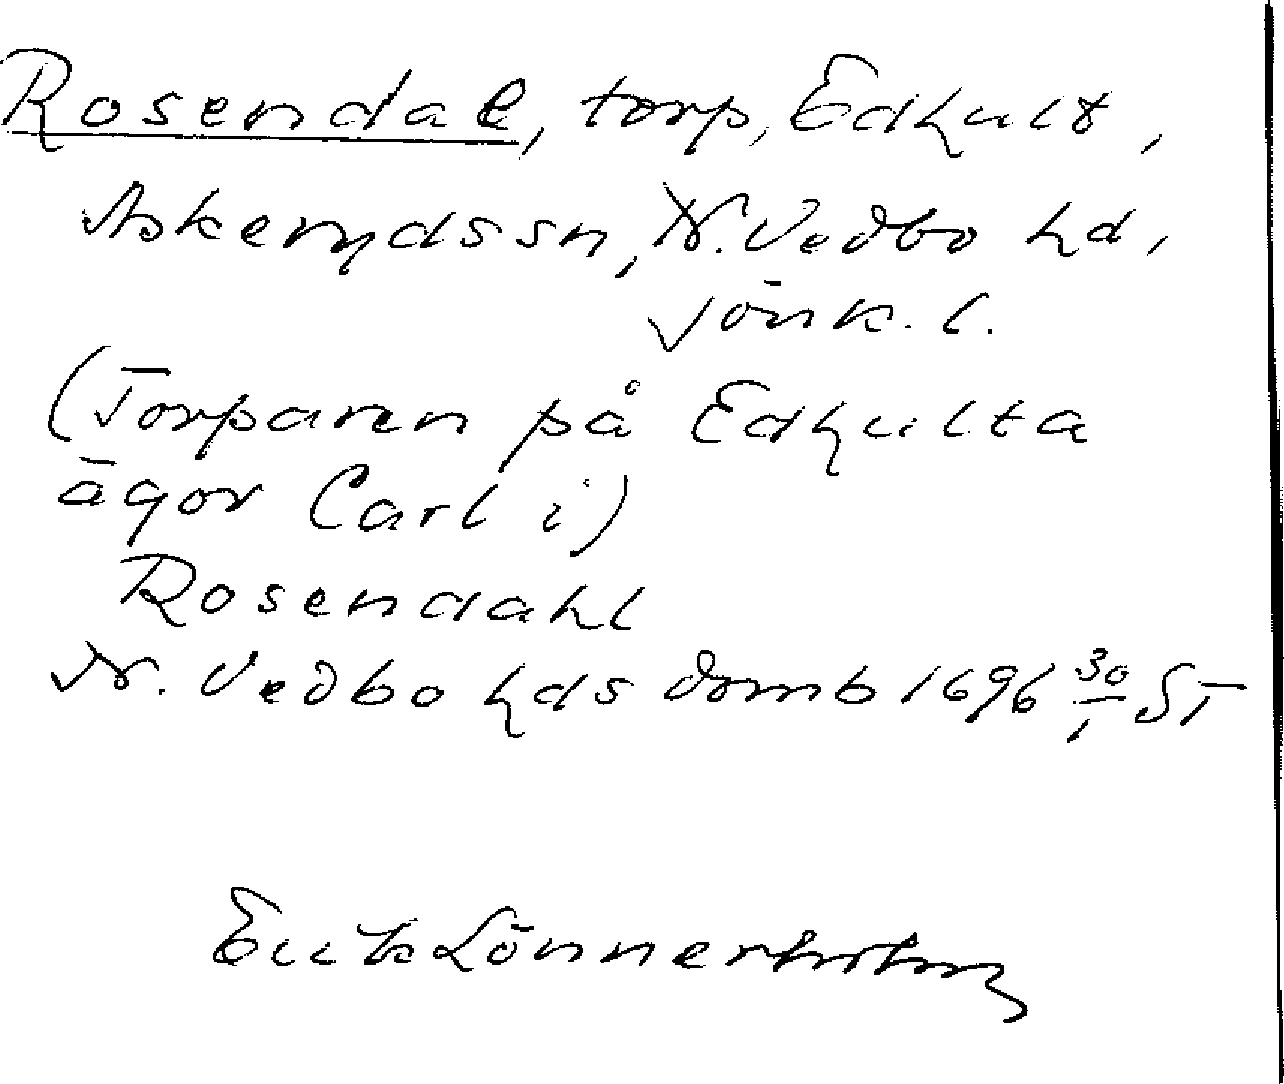 Rosendal, torp, Edhult,
Askerydssn, N. Vedbo hd,
Jönk. l.
(Torparen på Edhulta
ägor Carl i)
Rosendahl
N. Vedbo hds domb 1696 30/1 ST
Erik Lönnerholm